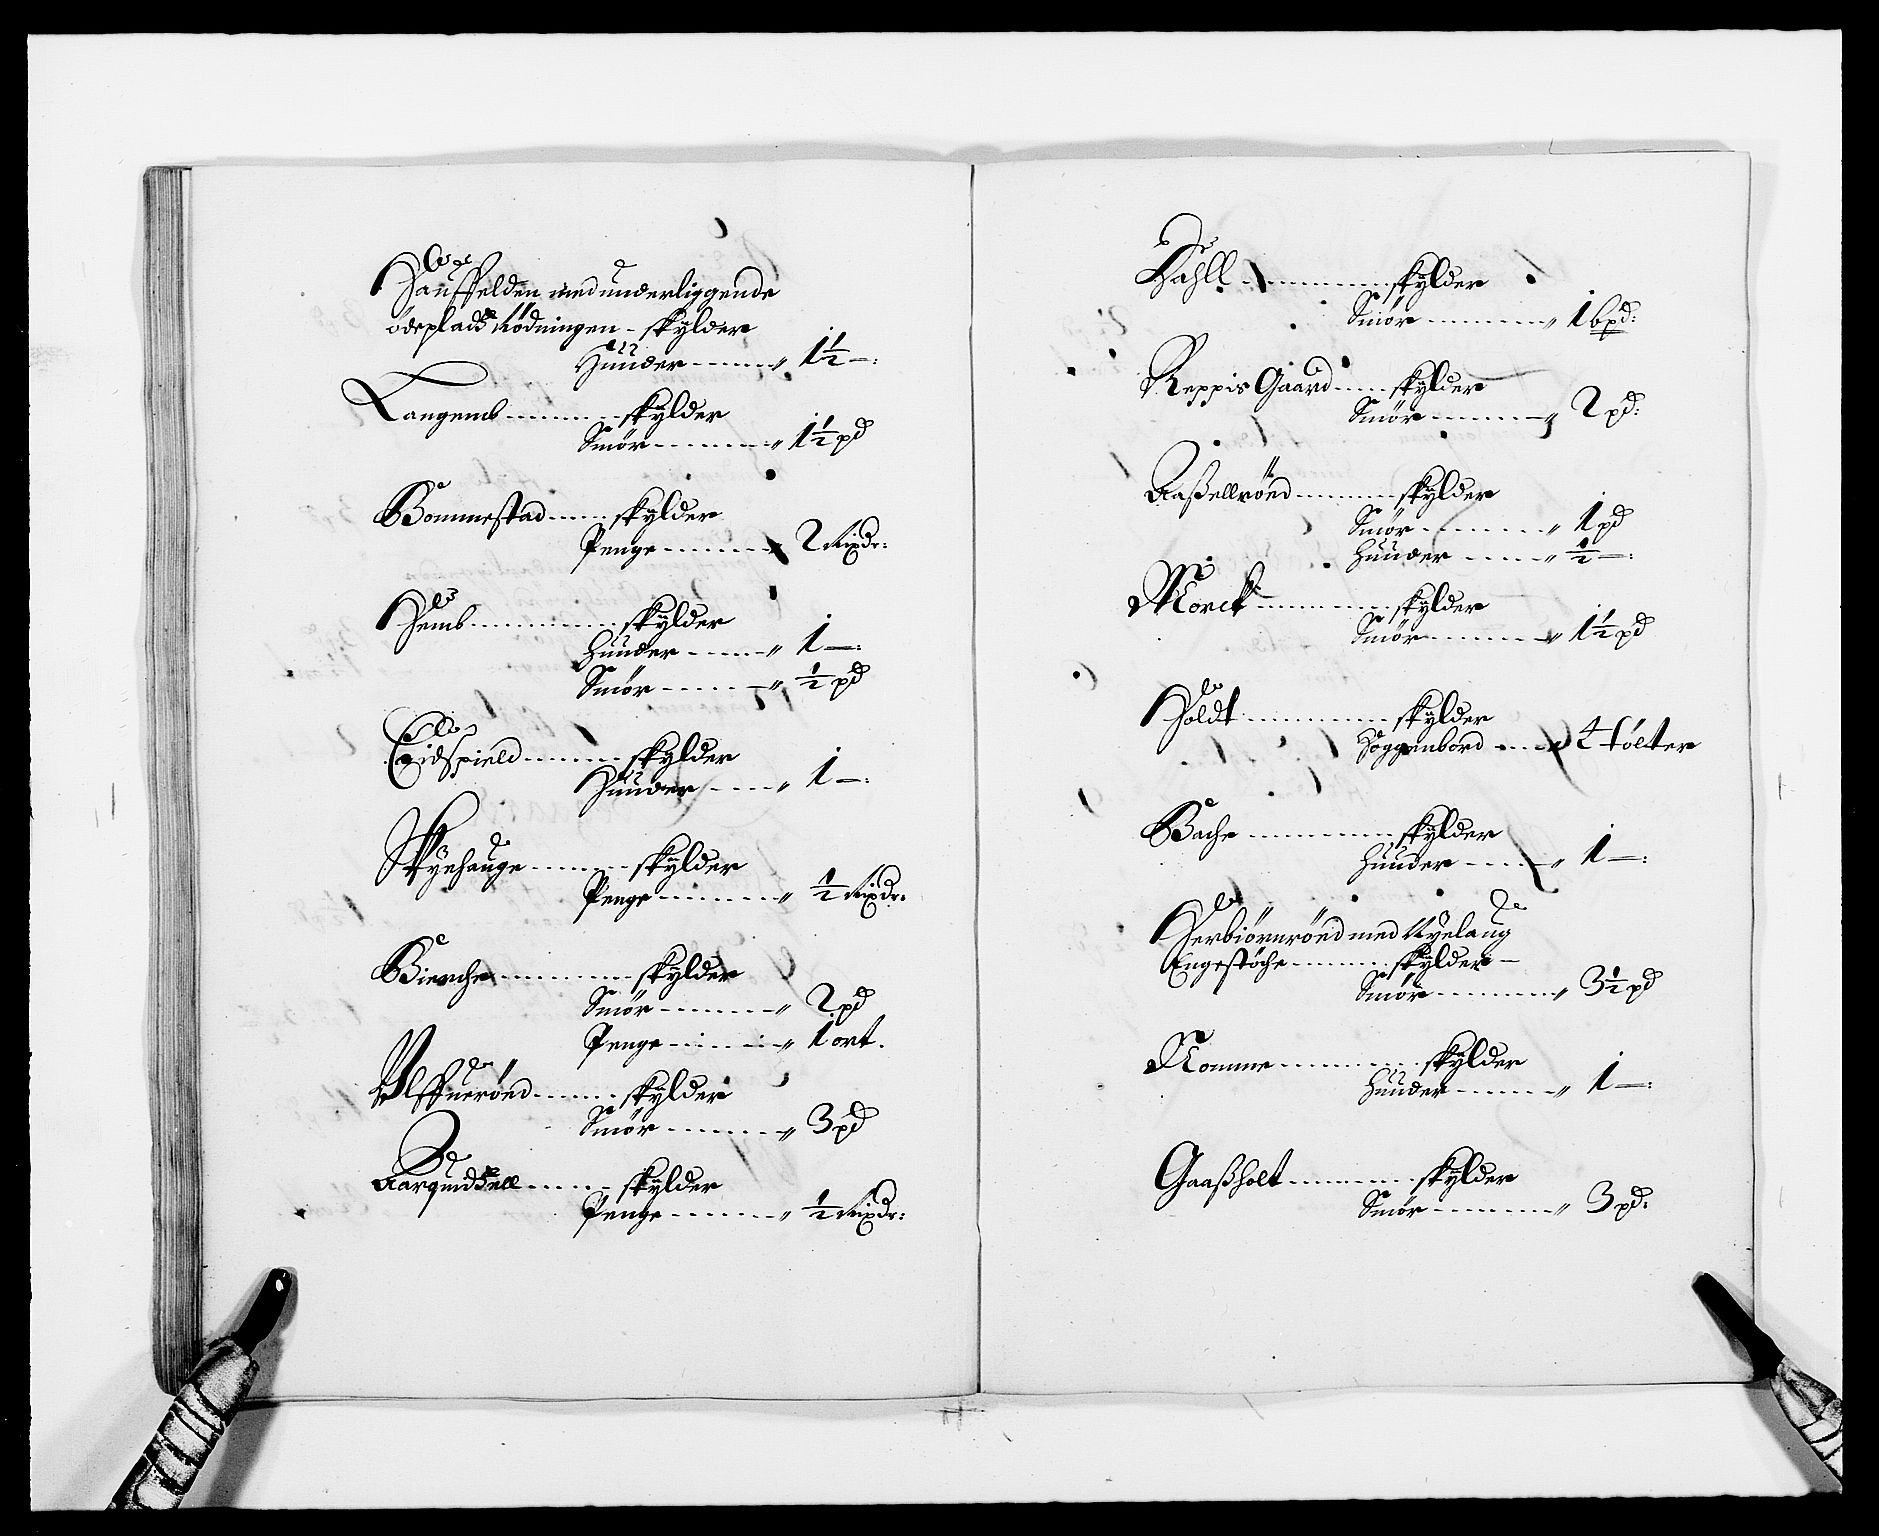 Hauffelden med underliggende
ödeplads Rödningen - skylder
Huuder - - - - „ 1½ —:
Langemb - - - - skylder
Smör - - - - „ 1½ pd
Bommestad - - - - skylder
Penge - - - - „ 2 Rixdr:
Hemb - - - - skylder
Huuder - - - - „ 1 —:
Smör - - - - „ ½ pd
Eidspield - - - - skylder
Huuder - - - - „ 1 —:
Skyehauge - - - - skylder
Penge - - - - „ ½ Rixdr:
Bierche - - - - skylder
Smör - - - - „ 2 pd
Penge - - - - „ 1 ort.
Ulffueröed - - - - skylder
Smör - - - - „ 3 pd
Aarquidsell - - - - skylder
Penge - - - - „ ½ Rixdr:
Dahll - - - - skylder
Smör - - - - „ 1 bpd:
Reppis Gaard - - - - skylder
Smör - - - - „ 2 pd:
Aaßellröed - - - - skylder
Smör - - - - „ 1 pd
Huuder - - - - „ ½ —:
Morck - - - - skylder
Smör - - - - „ 1½ pd
Holdt - - - - skylder
Hoggenbord - - - - „ 4 tölter
Bache - - - - skylder
Huuder - - - - „ 1 —:
Herbiörnröed med Nyelaug
Engestöche - - - - skylder —
Smör - - - - „ 3½ pd
Nomme - - - - skylder
Huuder - - - - „ 1 —:
Gaaßholt - - - - skylder
Smör - - - - „ 3 pd: